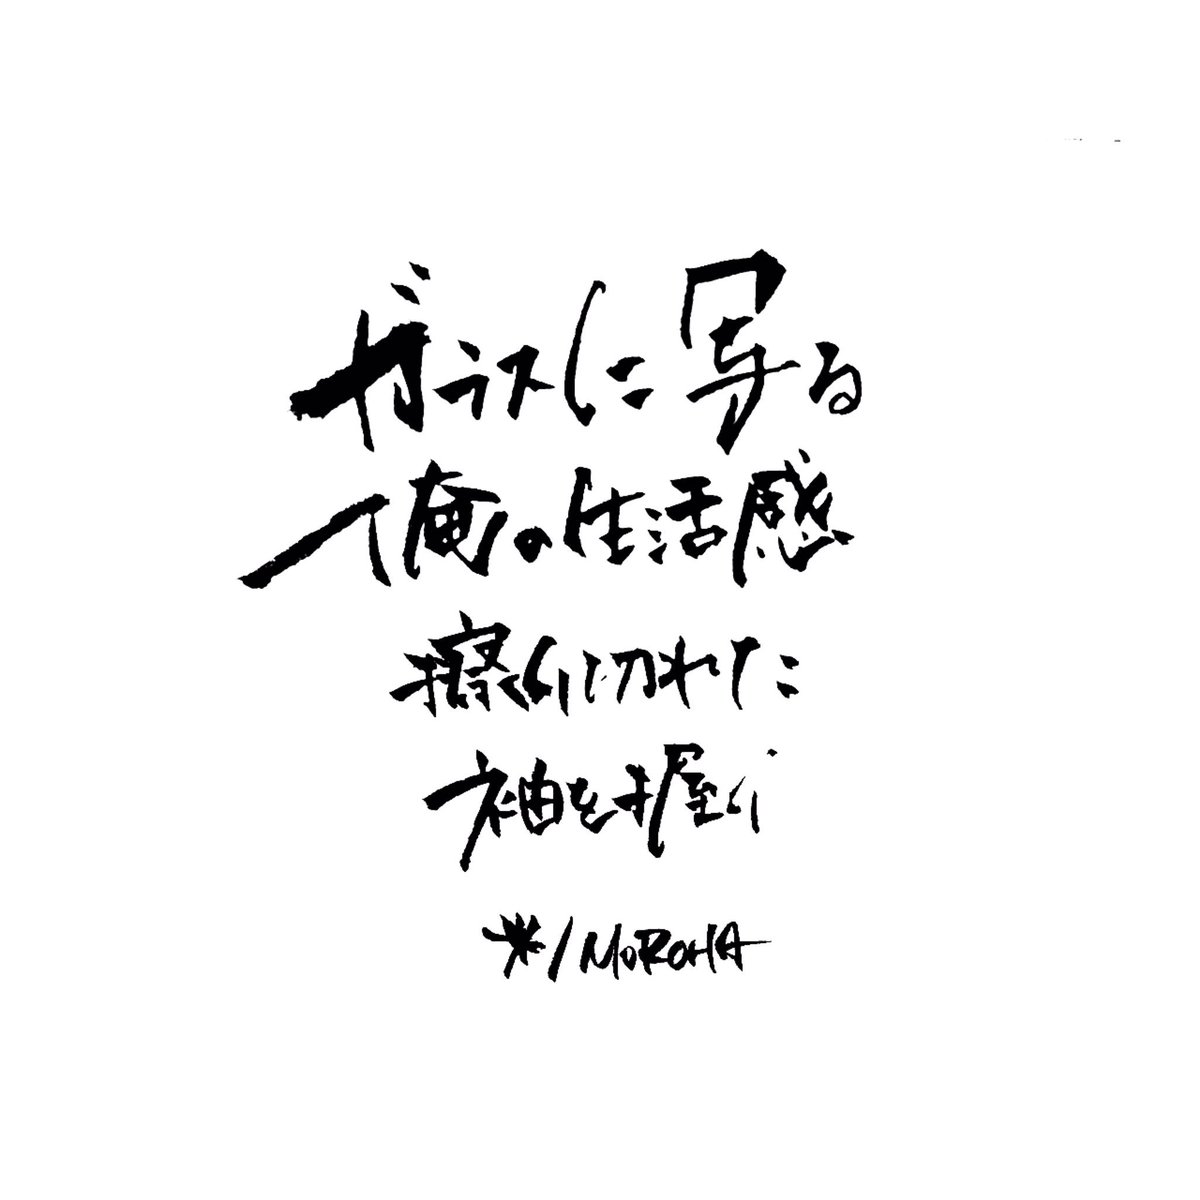 ガラスに写る
俺の生活感
擦り切れた
袖を握り
米/MOROHA